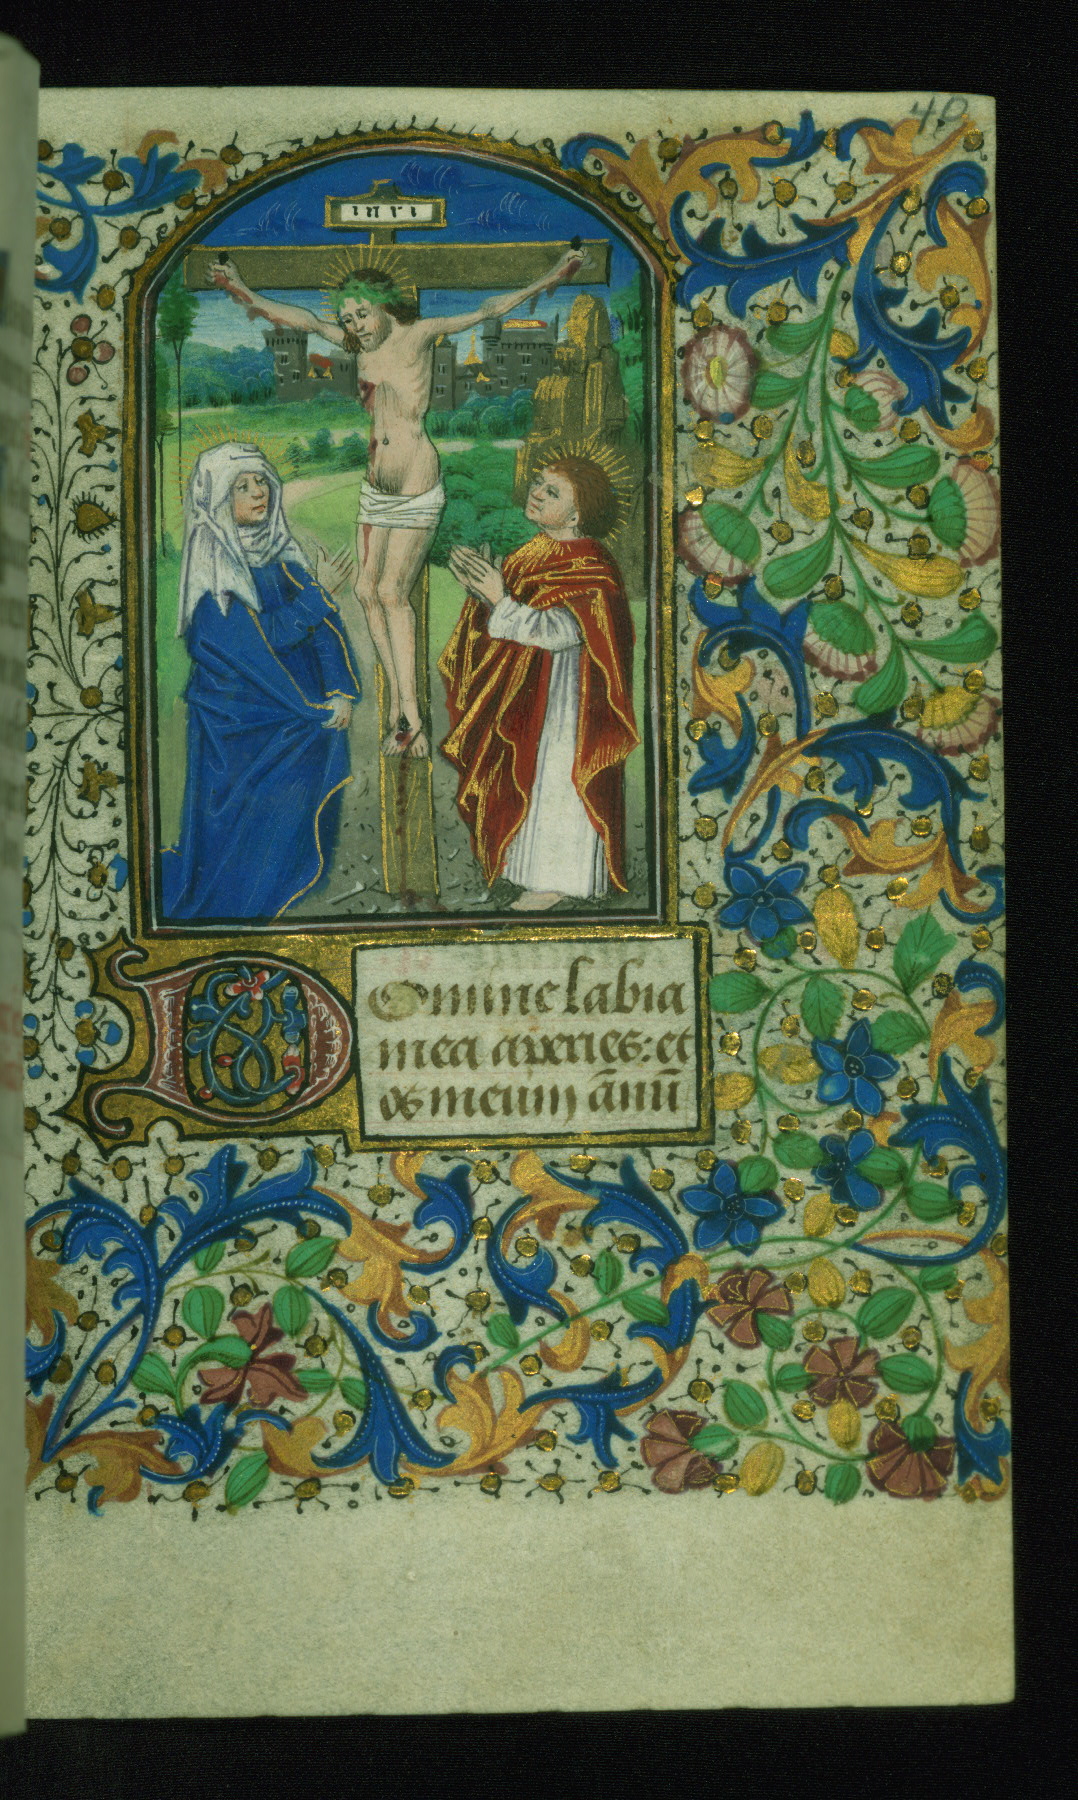 40
INRI
Domine labia
mea aperies: et
os meum ānū